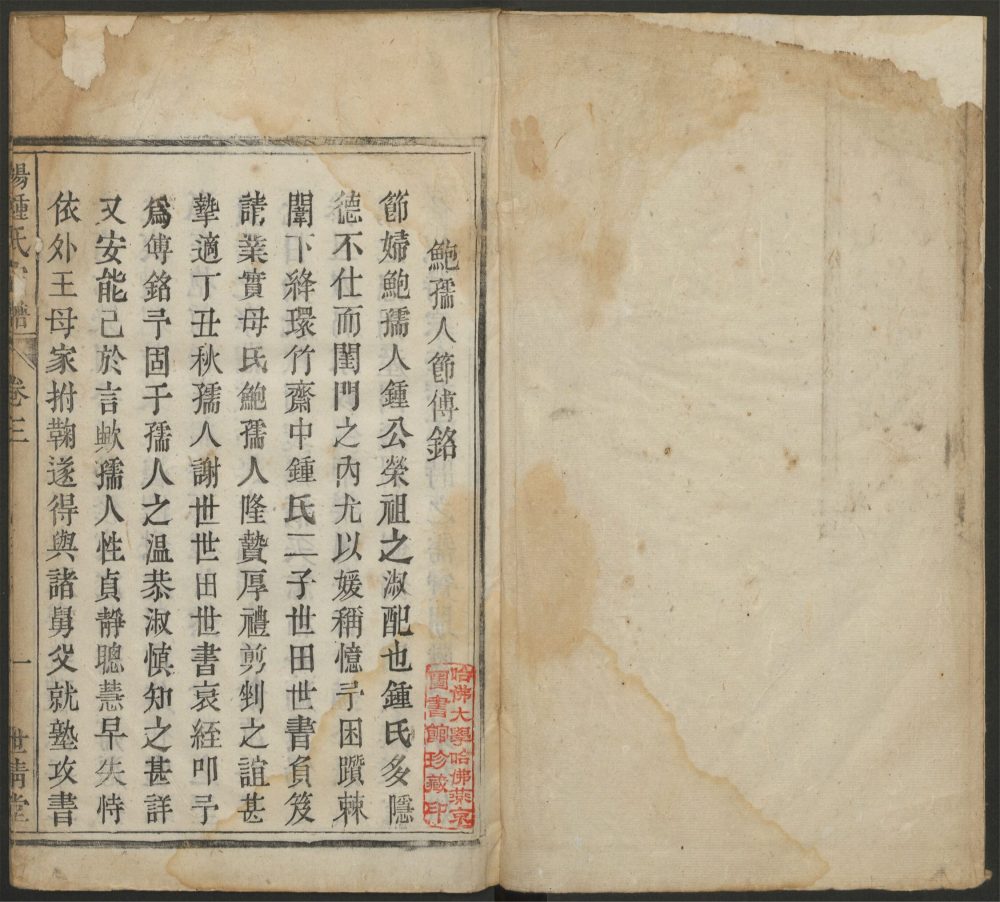 鮑孺人節傳銘
節婦鮑孺人鍾公榮祖之淑配也鍾氏多隱
德不仕而閨門之內尤以媛稱憶予困躓棘
闈下絳環竹齋中鍾氏二子世田世書負笈
請業實母氏鮑孺人隆贄厚禮剪剉之誼甚
摯適丁丑秋孺人謝世世田世書哀絰叩予
爲傳銘予固于孺人之温恭淑慎知之甚詳
又安能已於言歟孺人性貞靜聰慧早失恃
依外王母家拊鞠遂得與諸舅父就塾攻書
陽鍾氏宗譜 卷三 一 世晴堂
哈佛大學哈佛燕京
圖書館珍藏印